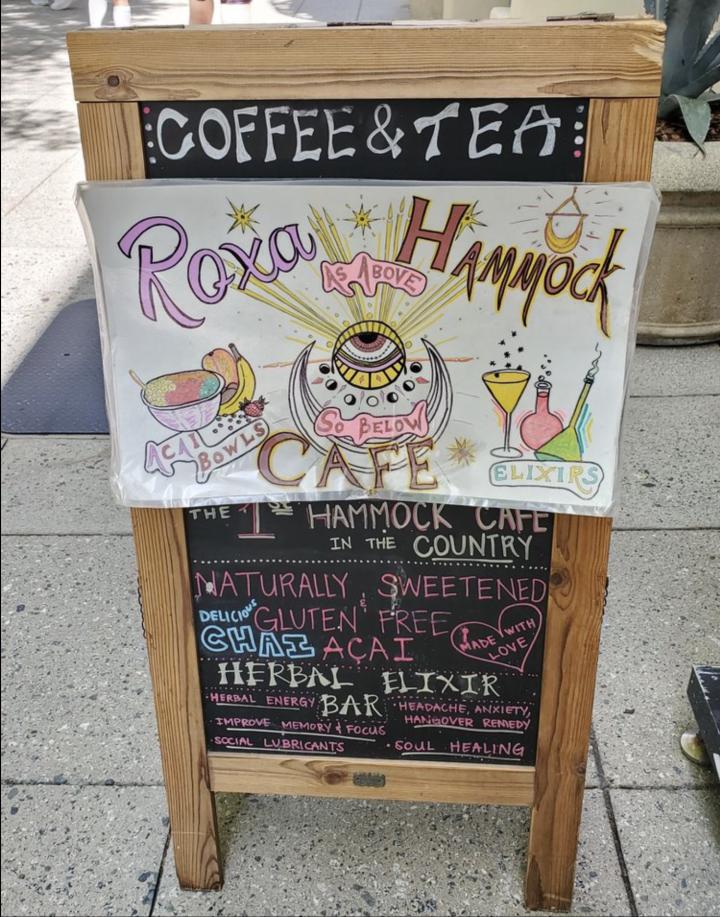 COFFEE & TEA
Roxa HAMMOCK
AS ABOVE
SO BELOW
ACAI BOWLS
CAFE
ELIXIRS
THE 1ST HAMMOCK CAFE
IN THE COUNTRY
NATURALLY SWEETENED
& GLUTEN FREE
DELICIOUS
CHAI AÇAI
MADE WITH LOVE
HERBAL ELIXIR
BAR
HERBAL ENERGY
IMPROVE MEMORY & FOCUS
SOCIAL LUBRICANTS
· HEADACHE, ANXIETY,
HANGOVER REMEDY
· SOUL HEALING